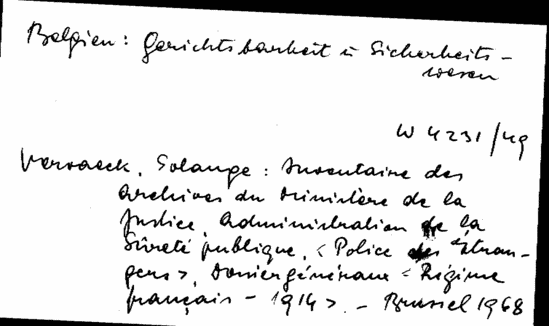 Belgien: Gerichtsbarkeit u Sicherheits-
wesen
W 4231/49
Vervaeck, Solange: Inventaire des
archives du Ministère de la
Justice, Administration de la
Sûreté publique, <Police des étran-
gers>, Dossiers généraux <Régime
français - 1914>. - Brussel 1968